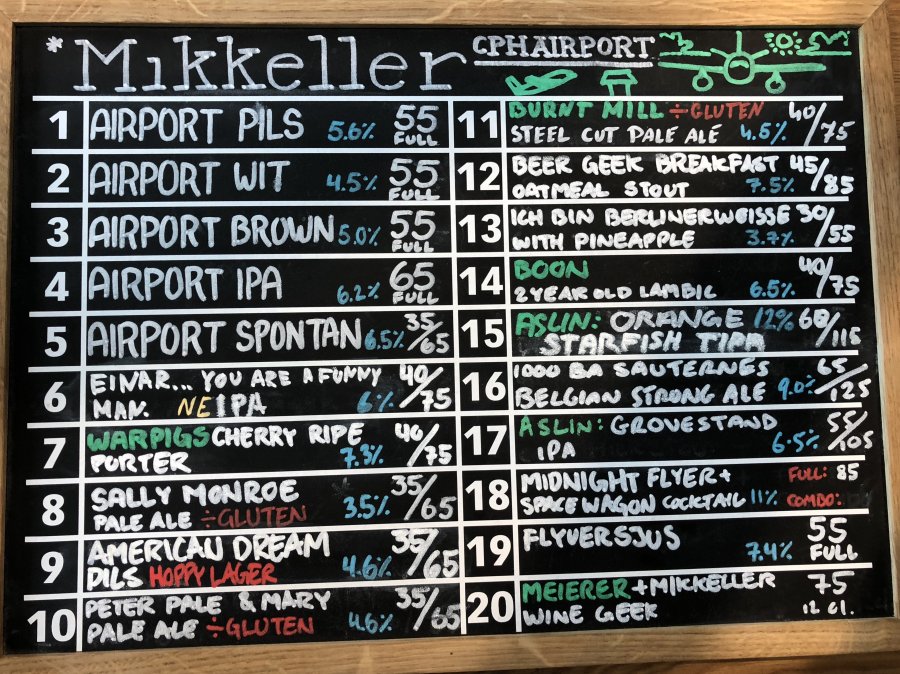 * Mikkeller CPH AIRPORT
1 AIRPORT PILS 5.6% 55 FULL
2 AIRPORT WIT 4.5% 55 FULL
3 AIRPORT BROWN 5.0% 55 FULL
4 AIRPORT IPA 6.2% 65 FULL
5 AIRPORT SPONTAN 6.5% 35/65
6 EINAR... YOU ARE A FUNNY
MAN. NEIPA 6% 40/75
7 WARPIGS CHERRY RIPE
PORTER 7.3% 40/75
8 SALLY MONROE
PALE ALE ÷GLUTEN 3.5% 35/65
9 AMERICAN DREAM
PILS HOPPY LAGER 4.6% 35/65
10 PETER PALE & MARY
PALE ALE ÷GLUTEN 4.6% 35/65
11 BURNT MILL ÷GLUTEN
STEEL CUT PALE ALE 4.5% 40/75
12 BEER GEEK BREAKFAST
OATMEAL STOUT 7.5% 45/85
13 ICH BIN BERLINERWEISSE
WITH PINEAPPLE 3.7% 30/55
14 BOON
2 YEAR OLD LAMBIC 6.5% 40/75
15 ASLIN: ORANGE 12%
STARFISH TIPA 60/115
16 1000 BA SAUTERNES
BELGIAN STRONG ALE 9.0% 65/125
17 ASLIN: GROVESTAND
IPA 6.5% 55/105
18 MIDNIGHT FLYER + FULL: 85
SPACE WAGON COCKTAIL 11% COMBO:
19 FLYVERSJUS 7.4% 55 FULL
20 MEIERER + MIKKELLER 75
WINE GEEK 12 Cl.